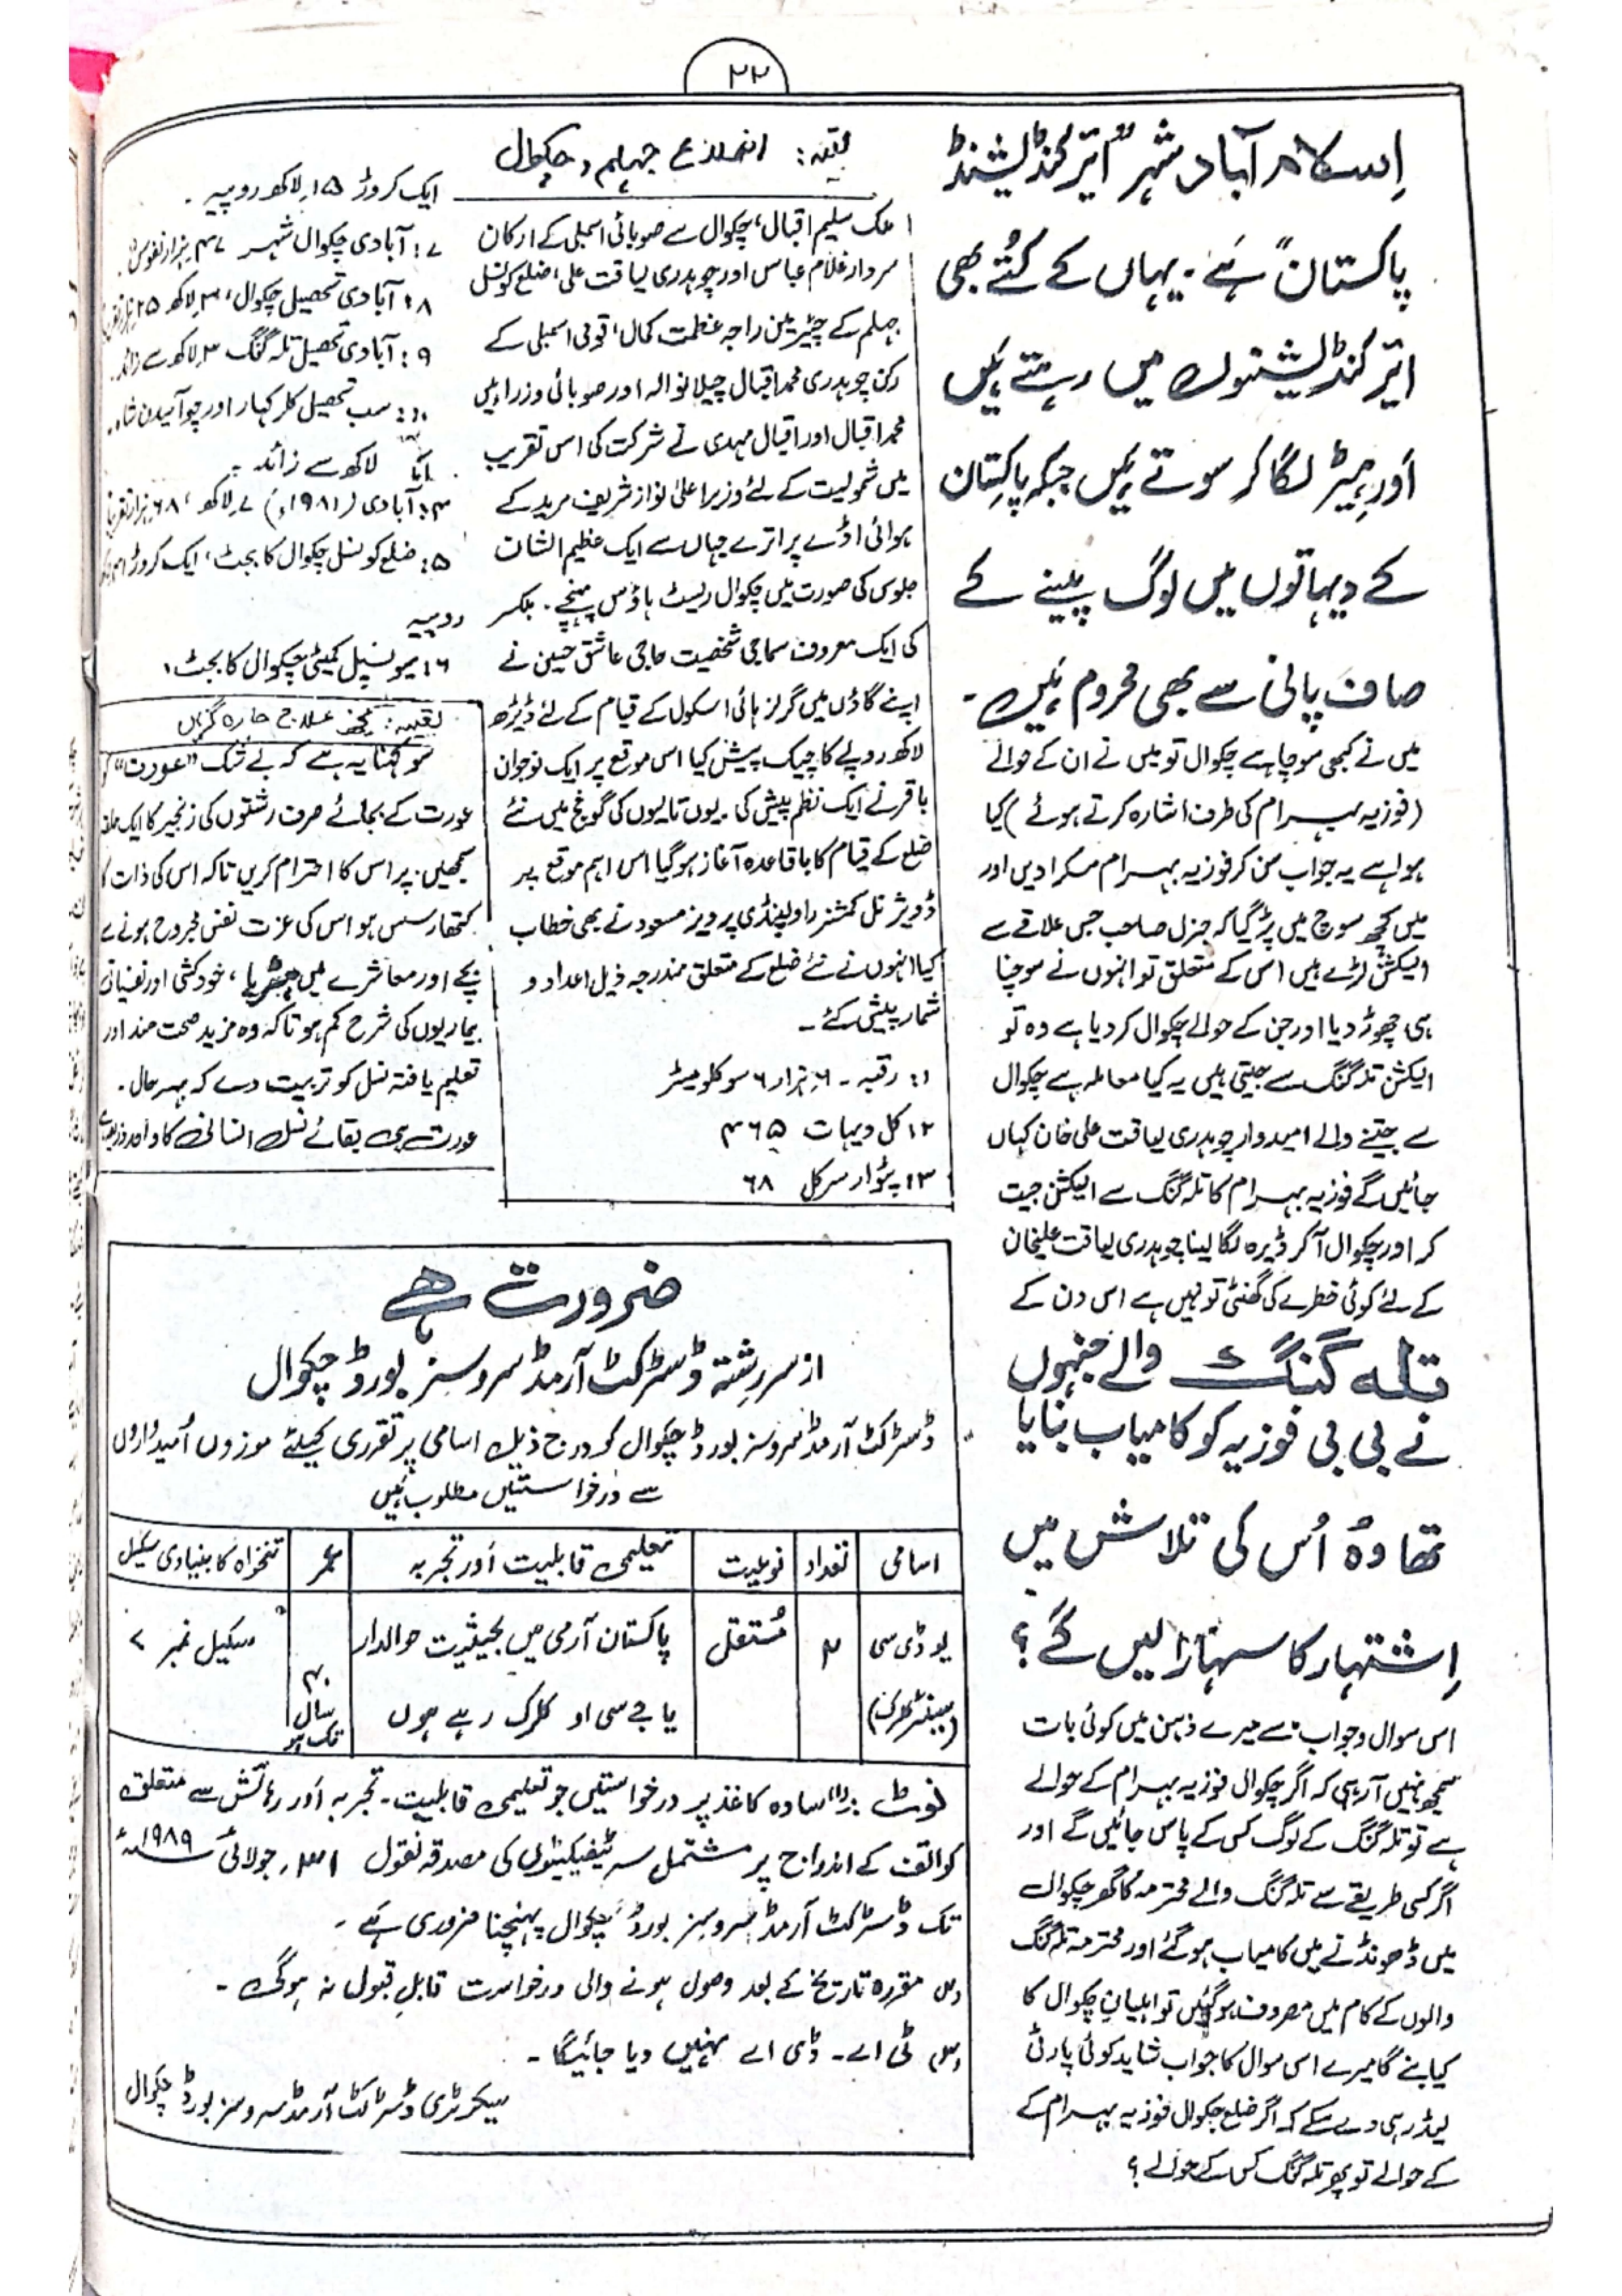 ۲۲
اِسلام آباد شہر "ائیر کنڈیشنڈ
پاکستان" ہَے۔ یہاں کے کُتّے بھی
ائیر کنڈیشنوں میں رہتے ہَیں
اَور ہیٹر لگا کر سوتے ہَیں جبکہ پاکِستان
کے دیہاتوں میں لوگ پینے کے
صاف پانی سے بھی محروم ہَیں۔
میں نے کبھی سوچا ہے چکوال تو میں نے ان کے حوالے
(فوزیہ بہرام کی طرف اشارہ کرتے ہوئے) کیا
ہوا ہے یہ جواب سن کر فوزیہ بہرام مسکرا دیں اور
میں کچھ سوچ میں پڑ گیا کہ جنرل صاحب جس علاقے سے
الیکشن لڑے ہیں اس کے متعلق تو انہوں نے سوچنا
ہی چھوڑ دیا اور جن کے حوالے چکوال کر دیا ہے وہ تو
الیکشن تلہ گنگ سے جیتی ہیں یہ کیا معاملہ ہے چکوال
سے جیتنے والے امیدوار چوہدری لیاقت علی خان کہاں
جائیں گے فوزیہ بہرام کا تلہ گنگ سے الیکشن جیت
کر اور چکوال آ کر ڈیرہ لگا لینا چوہدری لیاقت علیخان
کے لئے کوئی خطرے کی گھنٹی تو نہیں ہے اس دن کے
تلہ گنگ والے جنہوں
نے بی بی فوزیہ کو کامیاب بنایا
تھا وہُ اُس کی تلاش میں
اِشتہار کا سہارا لیں گے؟
اس سوال و جواب سے میرے ذہن میں کوئی بات
سمجھ نہیں آ رہی کہ اگر چکوال فوزیہ بہرام کے حوالے
ہے تو تلہ گنگ کے لوگ کس کے پاس جائیں گے اور
اگر کسی طریقے سے تلہ گنگ والے محترمہ کا گھر چکوال
میں ڈھونڈنے میں کامیاب ہو گئے اور محترمہ تلہ گنگ
والوں کے کام میں مصروف ہو گئیں تو اہلیان چکوال کا
کیا بنے گا میرے اس سوال کا جواب شاید کوئی پارٹی
لیڈر ہی دے سکے کہ اگر ضلع چکوال فوزیہ بہرام کے
کے حوالے تو پھر تلہ گنگ کس کے حوالے؟
بقیہ: اضلاع جہلم، چکوال
ملک سلیم اقبال، چکوال سے صوبائی اسمبلی کے ارکان
سردار غلام عباس اور چوہدری لیاقت علی، ضلع کونسل
جہلم کے چیئرمین راجہ عظمت کمال، قومی اسمبلی کے
رکن چوہدری محمد اقبال چیلانوالہ اور صوبائی وزراء میں
محمد اقبال اور اقبال مہدی نے شرکت کی اس تقریب
میں شمولیت کے لئے وزیر اعلیٰ نواز شریف مرید کے
ہوائی اڈے پر اترے جہاں سے ایک عظیم الشان
جلوس کی صورت میں چکوال ریسٹ ہاؤس پہنچے۔ بلکسر
کی ایک معروف سماجی شخصیت حاجی عاشق حسین نے
اپنے گاؤں میں گرلز ہائی اسکول کے قیام کے لئے ڈیڑھ
لاکھ روپے کا چیک پیش کیا اس موقع پر ایک نوجوان
باقر نے ایک نظم پیش کی۔ یوں تالیوں کی گونج میں نئے
ضلع کے قیام کا باقاعدہ آغاز ہو گیا اس اہم موقع پر
ڈویژنل کمشنر راولپنڈی پرویز مسعود نے بھی خطاب
کیا انہوں نے نئے ضلع کے متعلق مندرجہ ذیل اعداد و
شمار پیش کئے۔
۱: رقبہ۔ ۶ ہزار ۶ سو کلومیٹر
۲: کل دیہات ۴۶۵
۳: پٹوار سرکل ۶۸
ایک کروڑ ۱۵ لاکھ روپیہ۔
۷: آبادی چکوال شہر ۴۷ ہزار نفوس
۸: آبادی تحصیل چکوال، ۳ لاکھ ۲۵
۹: آبادی تحصیل تلہ گنگ ۳ لاکھ سے زائد۔
۱۰: سب تحصیل کلر کہار اور چوآسیدن شاہ۔
لاکھ سے زائد۔
۴: آبادی (۱۹۸۱ء) ۷ لاکھ، ۶۸ ہزار
۵: ضلع کونسل چکوال کا بجٹ، ایک کروڑ
روپیہ
۶: میونسپل کمیٹی چکوال کا بجٹ،
بقیہ: کچھ علاج چارہ گراں
سو کہنا یہ ہے کہ بے شک "عورت"
عورت کے بجائے صرف رشتوں کی زنجیر کا ایک حلقہ
سمجھیں۔ پر اس کا احترام کریں تاکہ اس کی ذات کا
کتھارسس ہو اس کی عزت نفس مجروح ہونے سے
بچے اور معاشرے میں ہسٹریا، خودکشی اور نفسیاتی
بیماریوں کی شرح کم ہو تاکہ وہ مزید صحت مند اور
تعلیم یافتہ نسل کو تربیت دے کہ بہر حال۔
عورت ہی بقائے نسل انسانی کا واحد ذریعہ ہے
ضرورت ہے
از سررِشتہ ڈسٹرکٹ آرمڈ سروسز بورڈ چکوال
ڈسٹرکٹ آرمڈ سروسز بورڈ چکوال کو درج ذیل اسامی پر تقرری کیلئے موزوں اُمیدواروں
سے درخواستیں مطلوب ہَیں
اسامی | تعداد | نوعیت | تعلیمی قابلیت اَور تجربہ | عمر | تنخواہ کا بنیادی سکیل
یو ڈی سی | ۲ | مُستقل | پاکستان آرمی میں بحیثیت حوالدار | ۴۰ | سکیل نمبر ۷
یا جے سی او کلرک رہے ہوں | سال
تک ہو
نوٹ: (۱) سادہ کاغذ پر درخواستیں جو تعلیمی قابلیت۔ تجربہ اَور رہائش سے متعلق
کوائف کے اندراج پر مشتمل سرٹیفیکیٹوں کی مصدقہ نقول ۳۱، جولائی ۱۹۸۹ء
تک ڈسٹرکٹ آرمڈ سروسز بورڈ چکوال پہنچنا ضروری ہَے۔
(۲) مقررہ تاریخ کے بعد وصول ہونے والی درخواست قابلِ قبول نہ ہوگی۔
(۳) ٹی اے۔ ڈی اے نہیں دیا جائیگا۔
سیکرٹری ڈسٹرکٹ آرمڈ سروسز بورڈ چکوال